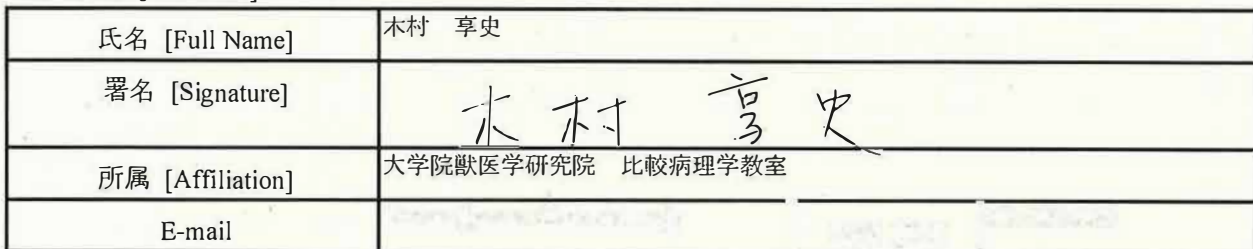 氏名 [Full Name]
木村 享史
署名 [Signature]
木村 享史
所属 [Affiliation]
大学院獣医学研究院 比較病理学教室
E-mail